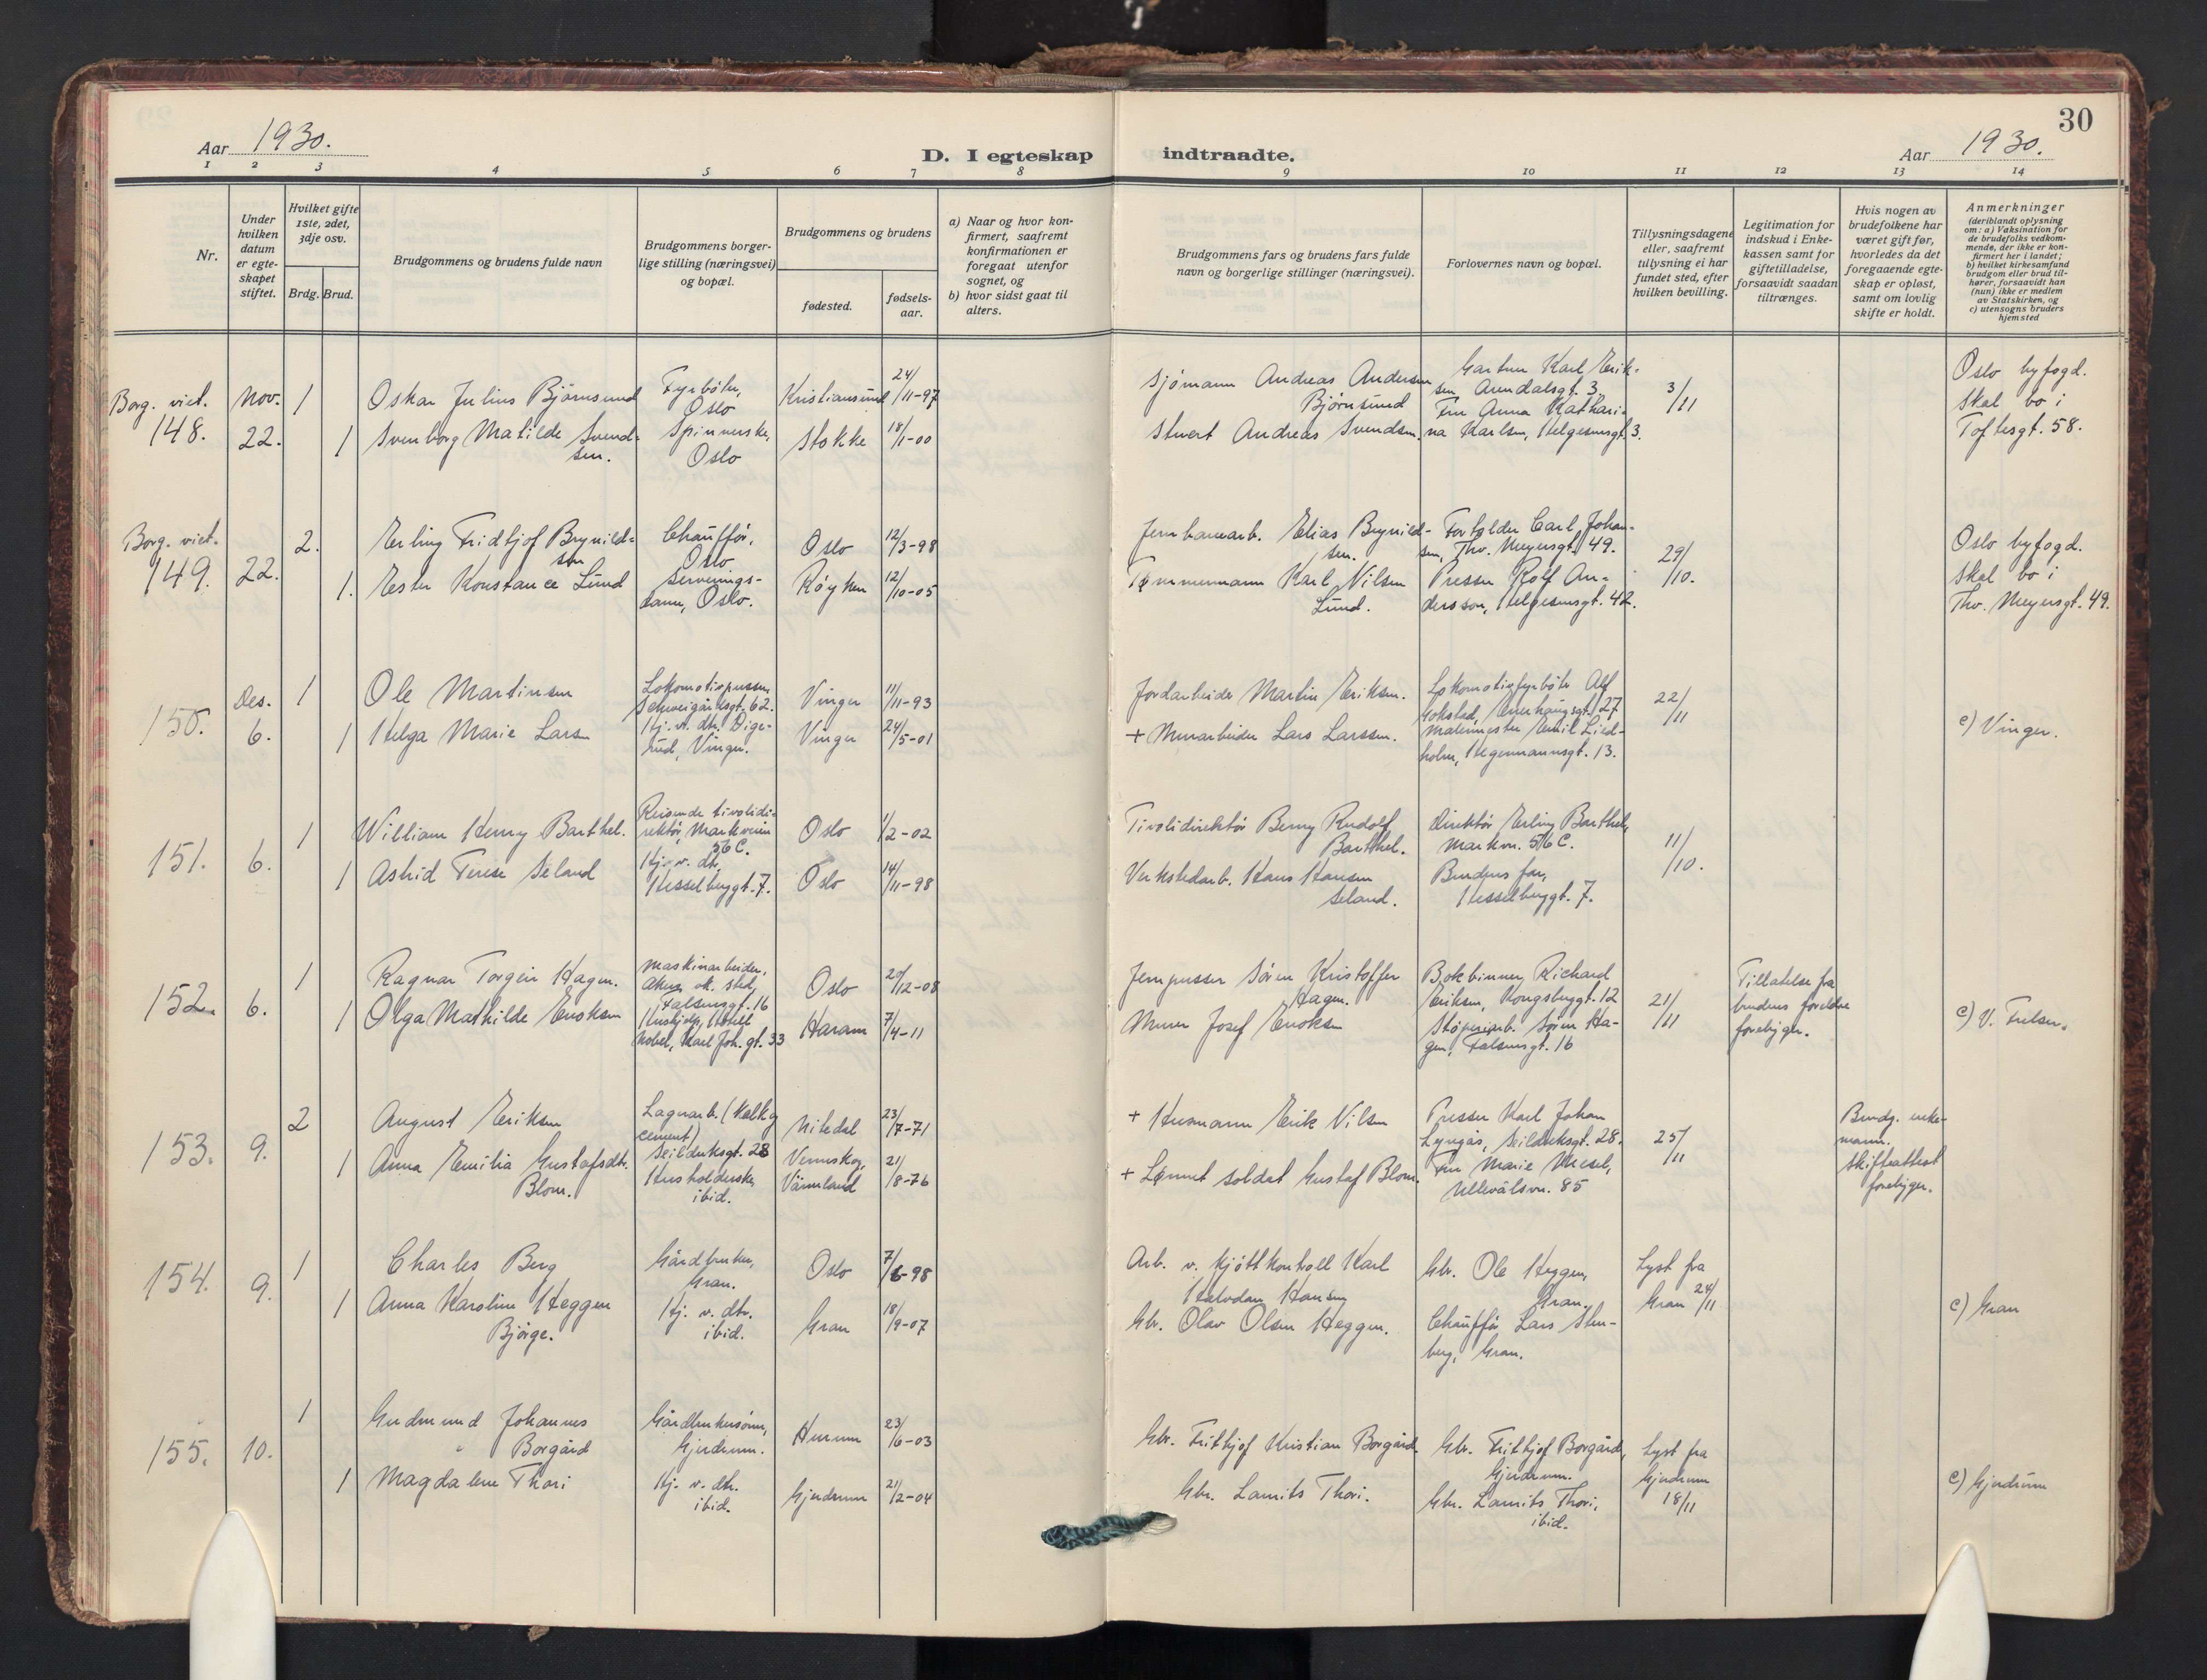 30
Aar 1930.
D. I egteskap indtraadte.
Aar 1930.
1 2 3 4 5 6 7 8 9 10 11 12 13 14
Nr.
Under hvilken datum er egte-skapet stiftet.
Hvilket gifte 1ste, 2det, 3dje osv.
Brdg. Brud.
Brudgommens og brudens fulde navn
Brudgommens borger-lige stilling (næringsvei) og bopæl.
Brudgommens og brudens
fødested.
fødsels-aar.
a) Naar og hvor kon-firmert, saafremt konfirmationen er foregaat utenfor sognet, og
b) hvor sidst gaat til alters.
Brudgommens fars og brudens fars fulde navn og borgerlige stillinger (næringsvei).
Forlovernes navn og bopæl.
Tillysningsdagene eller, saafremt tillysning ei har fundet sted, efter hvilken bevilling.
Legitimation for indskud i Enke-kassen samt for giftetilladelse, forsaavidt saadan tiltrænges.
Hvis nogen av brudefolkene har været gift før, hvorledes da det foregaaende egte-skap er opløst, samt om lovlig skifte er holdt.
Anmerkninger (deriblandt oplysning om: a) Vaksination for de brudefolks vedkom-mende, der ikke er kon-firmert her i landet; b) hvilket kirkesamfund brudgom eller brud til-hører, forsaavidt han (hun) ikke er medlem av Statskirken, og c) utensogns bruders hjemsted
Borg. viet. 148.
Nov. 22.
1
Oskar Julius Bjørnsund
Fyrbøter, Oslo
Kristiansund
24/11-97
Sjømann Andreas Andersen Bjørnsund
Gartner Karl Erik-sen Arendalsgt. 3,
3/11
Oslo byfogd. Skal bo i Toftesgt. 58.
1
Svenborg Matilde Svend-sen.
Spinnerske, Oslo
Stokke
18/1-00
Stuert Andreas Svendsen.
Fru Anna Kathari-na Karlsen, Helgesensgt. 3.
Borg. viet. 149.
22.
2.
Erling Fridtjof Brynild-sen
Chauffør, Oslo
Oslo
12/3-98
Jernbanearb. Elias Brynild-sen.
Forholder Carl Johan-sen, Thv. Meyersgt. 49.
29/10.
Oslo byfogd. Skal bo i Thv. Meyersgt. 49.
1.
Ester Konstance Lund
Serverings-dame, Oslo.
Røyken
12/10-05
Tømmermann Karl Nilsen Lund.
Presser Rolf An-dersson, Helgesensgt. 42.
150.
Des. 6.
1
Ole Martinsen
Lokomotivpusser, Schweigårdsgt. 62.
Vinger
11/11-93
Jordarbeider Martin Eriksen.
Lokomotivfyrbøter Alf Gokstad, Enerhaugsgt. 27
22/11
1
Helga Marie Larsen
Hj. v. dtr. Dige-rud, Vinger.
Vinger
24/5-01
+ Murarbeider Lars Larssen.
Malermester Emil Lied-holm, Hegermannsgt. 13.
c) Vinger.
151.
6.
1
William Henry Barthel.
Reisende tivolidi-rektør, Markveien 56 C.
Oslo
1/2-02
Tivolidirektør Benny Rudolf Barthel.
Direktør Erling Barthel, Markvn. 56 C.
11/10.
1
Astrid Terese Seland
Hj. v. dtr. Hesselberggt. 7.
Oslo
14/11-98
Verkstedarb. Hans Hansen Seland.
Brudens far, Hesselberggt. 7.
152.
6.
1
Ragnar Torgeir Hagen.
Maskinarbeider, Akers mek. Sted, Falsensgt. 16
Oslo
20/12-08
Jernpusser Søren Kristoffer Hagen.
Bokbinner Richard Eriksen, Kongsberggt. 12
21/11
Tillatelse fra brudens foreldre forebygger.
1
Olga Mathilde Enoksen
Hushjelp, Hotell Nobel, Karl Joh. gt. 33
Haram
7/4-11
Murer Josef Enoksen
Støperiarb. Søren Ha-gen, Falsensgt. 16
c) V. Frelser.
153.
9.
2
August Eriksen
Lagerarb. (Kalk og cement) Seilduksgt. 28
Nitedal
23/7-71
+ Husmann Erik Nilsen
Presser Karl Johan Lyngås, Seilduksgt. 28.
25/11
Brudg. enke-mann. Skifteattest forebygger.
1
Anna Emilia Gustafsdtr. Blom.
Husholderske, ibid.
Vermskog, Värmland
21/8-76
+ Lønnet soldat Gustaf Blom.
Fru Marie Wiesel, Ullevålsvn. 85
154.
9.
1
Charles Berg
Gårdbruker, Gran.
Oslo
7/6-98
Arb. v. Kjøttkontroll Karl Halvdan Hansen
Gbr. Ole Heggen, Gran.
Lyst fra Gran 24/11
1
Anna Karoline Heggen Bjørge.
Hj. v. dtr. ibid.
Gran
18/9-07
Gbr. Olav Olsen Heggen.
Chauffør Lars Sten-berg, Gran.
c) Gran
155.
10.
1
Gudmund Johannes Borgård
Gårdbrukersønn, Gjerdrum.
Hurum
23/6-03
Gbr. Fritthjof Kristian Borgård
Gbr. Fritthjof Borgård, Gjerdrum.
Lyst fra Gjerdrum 18/11
1
Magdalene Thori
Hj. v. dtr. ibid.
Gjerdrum
21/2-04
Gbr. Laurits Thori.
Gbr. Laurits Thori, ibid.
c) Gjerdrum